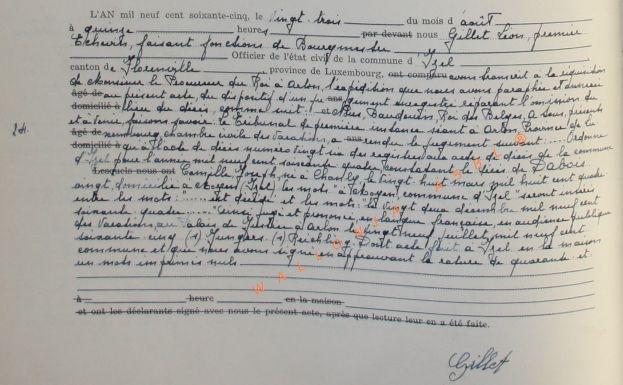 L'AN mil neuf cent soixante-cinq, le vingt-trois du mois d'août
à quinze heures par devant nous Gillet Léon, premier
Echevin, faisant fonctions de Bourgmestre
Officier de l'état civil de la commune d'Izel
canton de Florenville province de Luxembourg, ont comparu avons transcrit à la réquisition
de Monsieur le Procureur du Roi à Arlon, l'expédition que nous avons paraphée et annexée
âgé de au présent acte, du dispositif d'un jugement enregistré réparant l'omission du
domicilié à lieu du décès, comme suit: Baudouin, Roi des Belges, A tous présents
24.
et à venir, faisons savoir: le Tribunal de première instance séant à Arlon, Province de
âgé de Luxembourg, chambre civile des Vacations, a rendu le jugement suivant: Ordonne
domicilié à qu'à l'acte de décès numéro vingt six des registres aux actes de décès de la commune
d'Izel pour l'année mil neuf cent soixante quatre, constatant le décès de Dabois
Lesquels nous ont Camille Joseph, né à Chantly, le vingt huit mars mil huit cent quatre
vingt, domicilié à Moyen (Izel), les mots "à Moyen, commune d'Izel" seront insérés
entre les mots: est décédé et les mots: le vingt deux décembre mil neuf cent
soixante quatre Ainsi jugé et prononcé en langue française en audience publique
des Vacations, au Palais de Justice à Arlon le vingt neuf juillet mil neuf cent
soixante cinq (s) Jungers. (s) Reichling. Dont acte fait à Izel en la maison
commune et que nous avons signé en approuvant la rature de quarante et
un mots imprimés nuls
à heure en la maison
et ont les déclarants signé avec nous le présent acte, après que lecture leur en a été faite.
Gillet